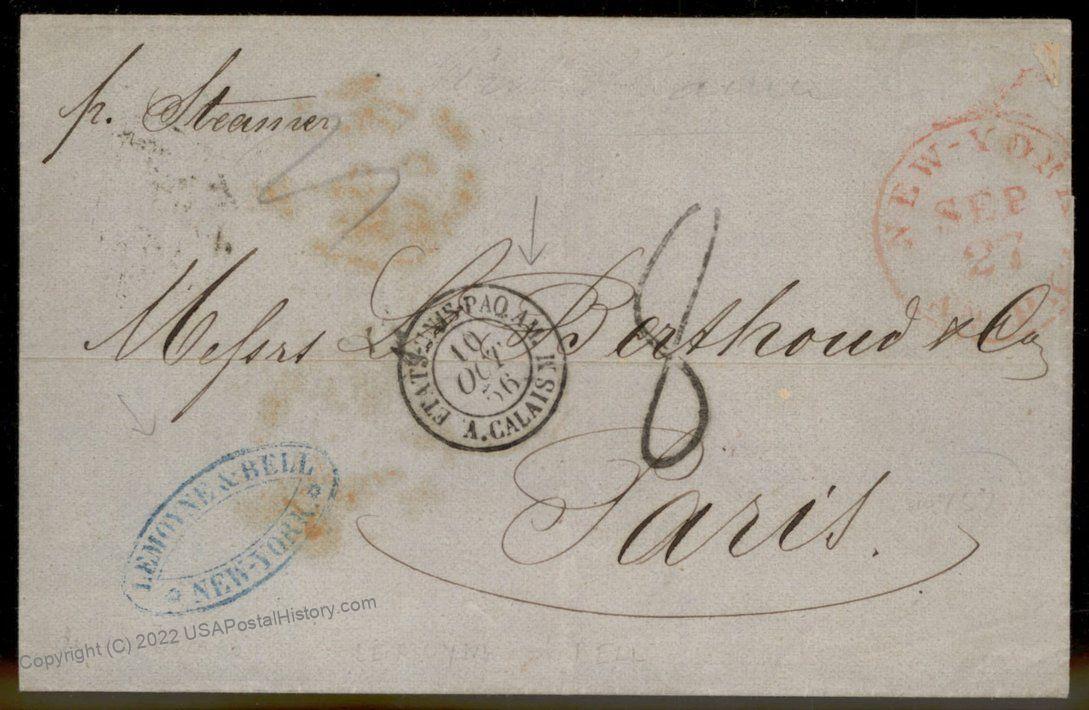 p. Steamer
NEW-YORK
SEP
27
Messrs L. Berthoud & Co
8
ETATS-UNIS PAQ. AM.
10
OCT
56
A. CALAIS K
Paris.
LEMOYNE & BELL
NEW-YORK.
Copyright (C) 2022 USAPostalHistory.com
BELL